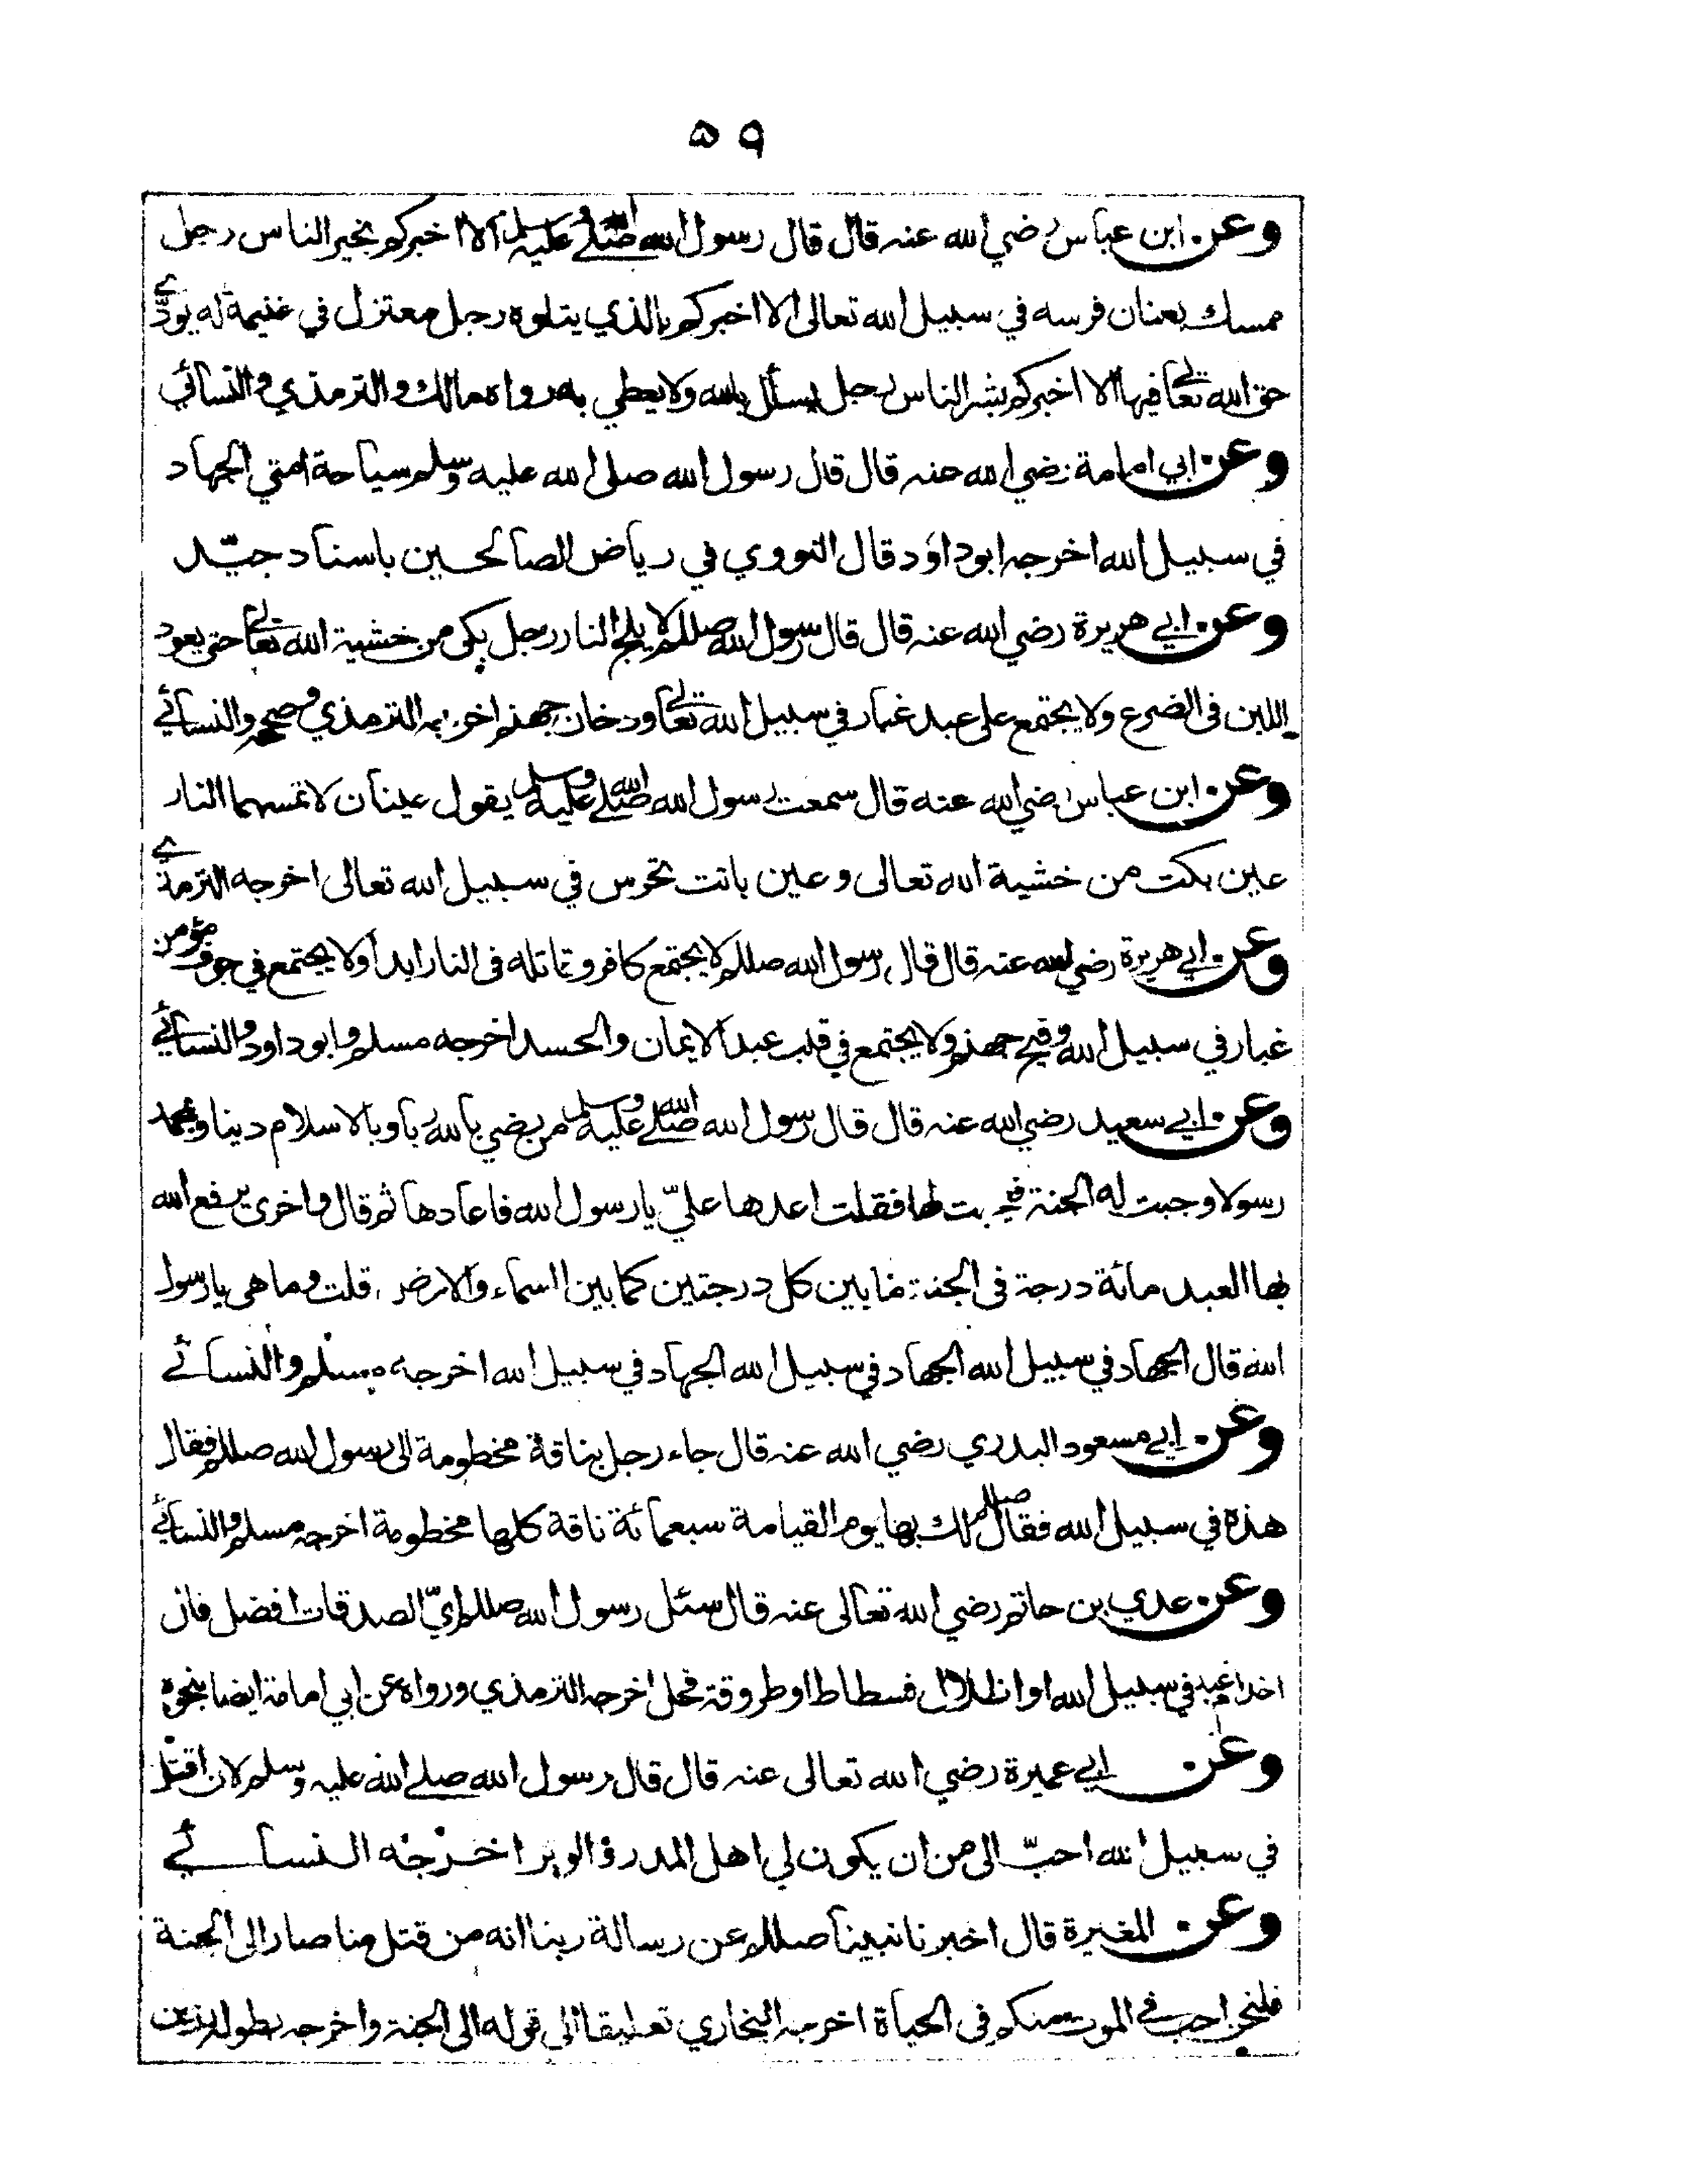 ٥٩
وعن ابن عباس رضي الله عنه قال قال رسول الله صلى الله عليه وسلم الا اخبركم بخير الناس رجل
ممسك بعنان فرسه في سبيل الله تعالى الا اخبركم بالذي يتلوه رجل معتزل في غنيمة له يودّي
حق الله تعالى فيها الا اخبركم بشر الناس رجل يسأل بالله ولا يعطي به رواه مالك والترمذي والنسائي
وعن ابي امامة رضي الله عنه قال قال رسول الله صلى الله عليه وسلم سياحة امتي الجهاد
في سبيل الله اخرجه ابوداؤد قال النووي في رياض الصالحين باسناد جيّد
وعن ابي هريرة رضي الله عنه قال قال رسول الله صللم لا يلج النار رجل بكى من خشية الله تعالى حتى يعود
اللبن فى الضرع ولا يجتمع على عبد غبار في سبيل الله تعالى ودخان جهنم اخرجه الترمذي وصححه والنسائي
وعن ابن عباس رضي الله عنه قال سمعت رسول الله صلى الله عليه وسلم يقول عينان لا تمسهما النار
عين بكت من خشية الله تعالى وعين باتت تحرس في سبيل الله تعالى اخرجه الترمذي
وعن ابي هريرة رضي الله عنه قال قال رسول الله صللم لا يجتمع كافر وقاتله فى النار ابدا ولا يجتمع في جوف مؤمن
غبار في سبيل الله وفيح جهنم ولا يجتمع في قلب عبد الايمان والحسد اخرجه مسلم وابو داود والنسائي
وعن ابي سعيد رضي الله عنه قال قال رسول الله صلى الله عليه وسلم من رضي بالله ربا وبالاسلام دينا وبمحمد
رسولا وجبت له الجنة فعجبت لها فقلت اعدها عليّ يا رسول الله فاعادها ثم قال واخرى يرفع الله
بها العبد مائة درجة فى الجنة ما بين كل درجتين كما بين السماء والارض قلت وما هى يا رسول
الله قال الجهاد في سبيل الله الجهاد في سبيل الله الجهاد في سبيل الله اخرجه مسلم والنسائي
وعن ابي مسعود البدري رضي الله عنه قال جاء رجل بناقة مخطومة الى رسول الله صللم فقال
هذه في سبيل الله فقال صللم لك بها يوم القيامة سبعمائة ناقة كلها مخطومة اخرجه مسلم والنسائي
وعن عدي بن حاتم رضي الله تعالى عنه قال سئل رسول الله صللم ايّ الصدقات افضل قال
اخدام عبد في سبيل الله او اظلال فسطاط او طروقة فحل اخرجه الترمذي ورواه عن ابي امامة ايضا بنحوه
وعن ابي عميرة رضي الله تعالى عنه قال قال رسول الله صلى الله عليه وسلم لان اقتل
في سبيل الله احبّ الى من ان يكون لي اهل المدر والوبر اخرجه النسائي
وعن المغيرة قال اخبرنا نبينا صللم عن رسالة ربنا انه من قتل منا صار الى الجنة
فلنحن احب في الموت منكم فى الحياة اخرجه البخاري تعليقا الى قوله الى الجنة واخرجه بطوله رزين